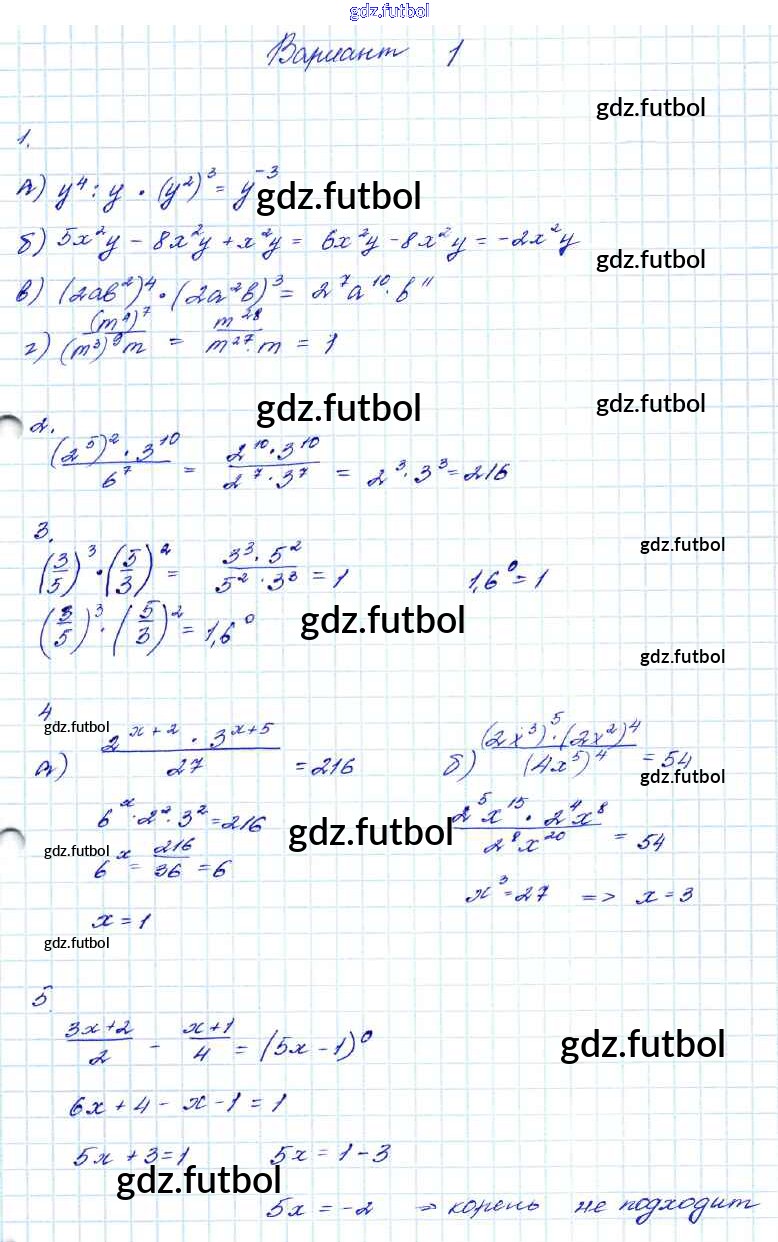 gdz.futbol
Вариант 1
gdz.futbol
1.
а) y⁴ : y · (y²)³ = y⁻³
gdz.futbol
б) 5x²y − 8x²y + x²y = 6x²y − 8x²y = −2x²y
gdz.futbol
в) (2ab²)⁴ · (2a²b)³ = 2⁷a¹⁰ · b¹¹
г) (m⁴)⁷/(m³)⁹m = m²⁸/m²⁷·m = 1
gdz.futbol gdz.futbol
2.
(2⁵)² · 3¹⁰/6⁷ = 2¹⁰ · 3¹⁰/2⁷ · 3⁷ = 2³ · 3³ = 216
3.
gdz.futbol
(3/5)³ · (5/3)² = 3³ · 5²/5² · 3³ = 1 1,6⁰ = 1
(3/5)³ · (5/3)² = 1,6⁰ gdz.futbol
gdz.futbol
4
gdz.futbol
а) 2ˣ⁺² · 3ˣ⁺⁵/27 = 216 б) (2x³)⁵ · (2x²)⁴/(4x⁵)⁴ = 54
gdz.futbol
6ˣ · 2² · 3² = 216 gdz.futbol 2⁵x¹⁵ · 2⁴x⁸/2⁸x²⁰ = 54
gdz.futbol
6ˣ = 216/36 = 6
x³ = 27 => x = 3
x = 1
gdz.futbol
5
3x+2/2 − x+1/4 = (5x − 1)⁰ gdz.futbol
6x + 4 − x − 1 = 1
5x + 3 = 1 5x = 1 − 3
gdz.futbol
5x = −2 → корень не подходит